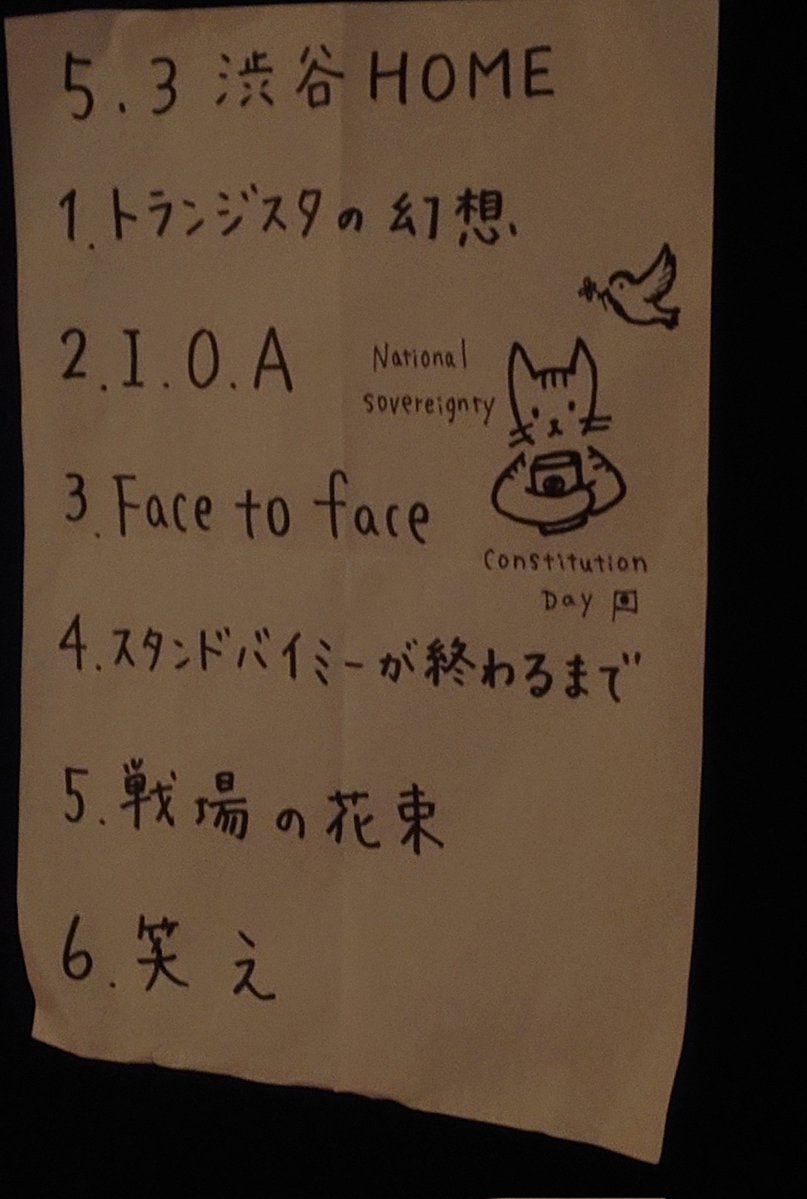 5.3 渋谷 HOME
1. トランジスタの幻想、
2. I.O.A
National
sovereignty
3. Face to face
Constitution
Day
4. スタンドバイミーが終わるまで
5. 戦場の花束
6. 笑え